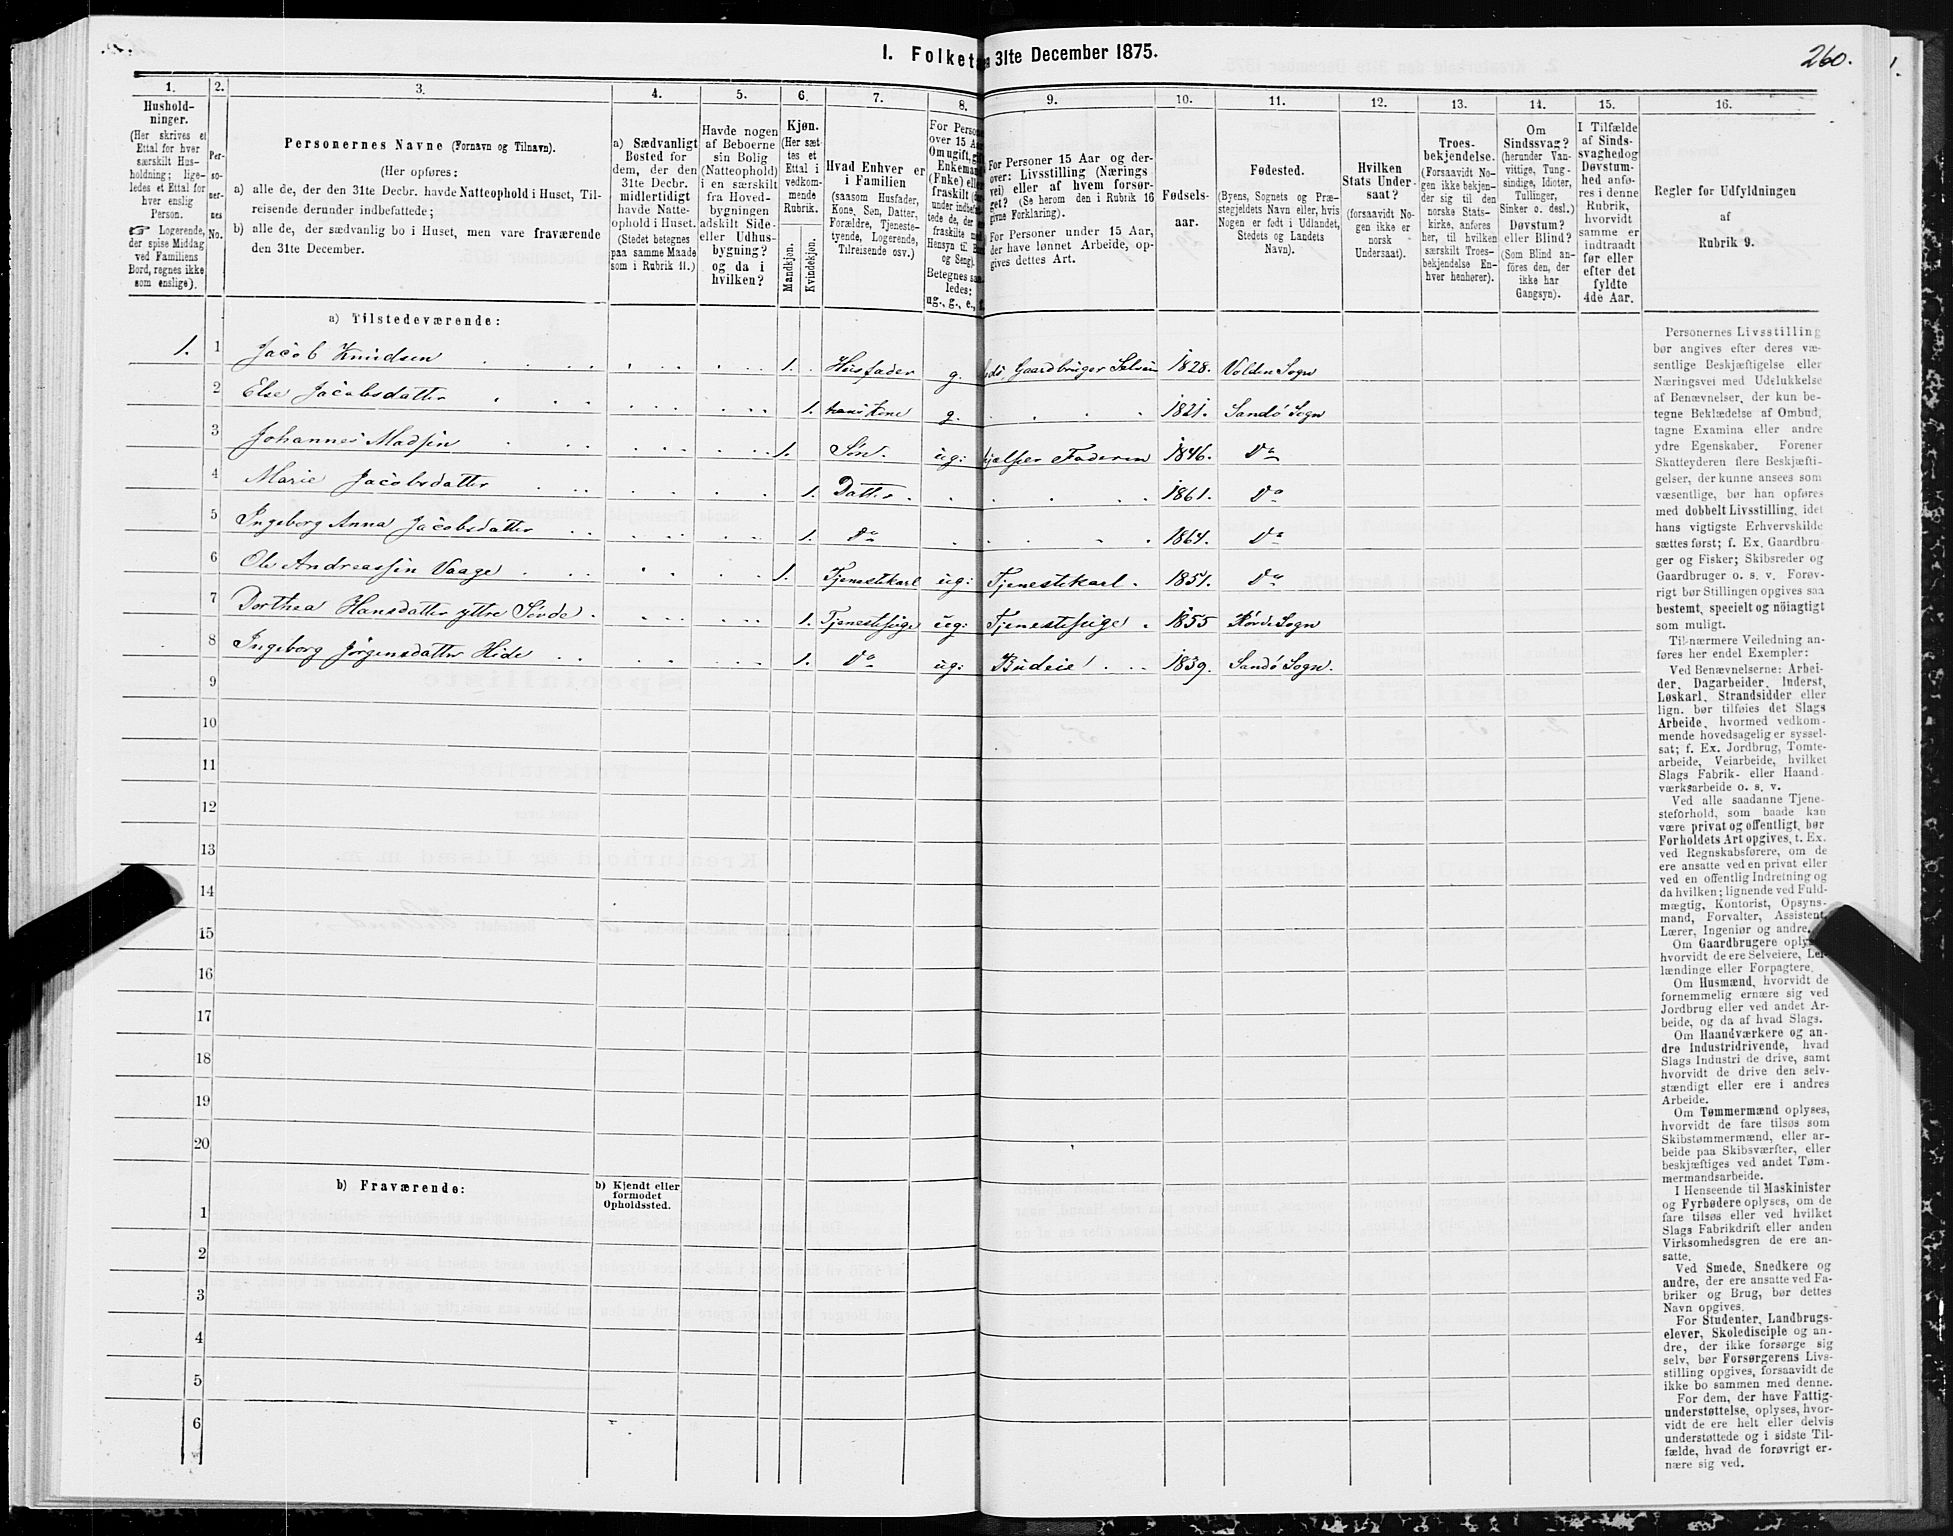 I. Folketæ 31te December 1875.
260.
1.
1. 2. 3. 4. 5. 6. 7. 8. 9. 10. 11. 12. 13. 14. 15. 16.
Hushold-
ninger.
(Her skrives et
Ettal for hver
særskilt Hus-
holdning; lige-
ledes et Ettal for
hver enslig
Person.
☞ Logerende,
der spise Middag
ved Familiens
Bord, regnes ikke
som enslige).
Per-
so-
ner-
nes
No.
Personernes Navne (Fornavn og Tilnavn).
(Her opføres:
a) alle de, der den 31te Decbr. havde Natteophold i Huset, Til-
reisende derunder indbefattede;
b) alle de, der sædvanlig bo i Huset, men vare fraværende
den 31te December.
a) Sædvanligt
Bosted for
dem, der den
31te Decbr.
midlertidigt
havde Natte-
ophold i Huset.
(Stedet betegnes
paa samme Maade
som i Rubrik 11.)
Havde nogen
af Beboerne
sin Bolig
(Natteophold)
i en særskilt
fra Hoved-
bygningen
adskilt Side-
eller Udhus-
bygning?
og da i
hvilken?
Kjøn.
(Her sæt-
tes et
Ettal i
vedkom-
mende
Rubrik.
Mandkjøn.
Kvindekjøn.
Hvad Enhver er
i Familien
(saasom Husfader,
Kone, Søn, Datter,
Forældre, Tjeneste-
tyende, Logerende,
Tilreisende osv.)
For Persone
over 15 Aa
Om ugift, gif
Enkeman
(Enke) elle
fraskilt (
under indbefat-
tede de, de
fraskilte me
Hensyn til B
og Seng).
Betegnes saa
ledes:
ug., g., e., f.
For Personer 15 Aar og der-
over: Livsstilling (Nærings
vei) eller af hvem forsør-
get? (Se herom den i Rubrik 16
givne Forklaring).
For Personer under 15 Aar,
der have lønnet Arbeide, op-
gives dettes Art.
Fødsels-
aar.
Fødested.
(Byens, Sognets og Præ-
stegjeldets Navn eller, hvis
Nogen er født i Udlandet,
Stedets og Landets
Navn).
Hvilken
Stats Under-
saat?
(forsaavidt No-
gen ikke er
norsk
Undersaat).
Troes-
bekjendelse.
(Forsaavidt No-
gen ikke bekjen-
der sig til den
norske Stats-
kirke, anføres
her, til hvilken
særskilt Troes-
bekjendelse En-
hver henhører).
Om
Sindssvag?
(herunder Van-
vittige, Tung-
sindige, Idioter,
Tullinger,
Sinker o. desl.)
Døvstum?
eller Blind?
(Som Blind an-
føres den, der
ikke har
Gangsyn).
I Tilfælde
af Sinds-
svaghed og
Døvstum-
hed anfø-
res i denne
Rubrik,
hvorvidt
samme er
indtraadt
før eller
efter det
fyldte
4de Aar.
Regler for Udfyldningen
af
Rubrik 9.
a) Tilstedeværende:
1. 1 Jacob Knudsen 1. Husfader g. Gaardbruger 1828. Volden Sogn
2 Else Jacobsdatter 1. hans Kone g. 1821. Sandø Sogn
3 Johannes Madsen 1. Søn. ug: hjælper Faderen 1846. Do
4 Marie Jacobsdatter 1. Datter. 1861. Do
5 Ingeborg Anna Jacobsdatter 1. Do 1864. Do
6 Ole Andreassen Vaage 1. Tjenestekarl ug: Tjenestekarl. 1851. Do
7 Dorthea Hansdatter yttre Sørde. 1. Tjenestepige ug: Tjenestepige 1855 Sogn
8 Ingeborg Jørgensdatter Hide 1. Do ug: Budeie 1859. Sandø Sogn.
9
10
11
12
13
14
15
16
17
18
19
20
b) Fraværende:
b) Kjendt eller
formodet
Opholdssted.
1
2
3
4
5
6
Personernes Livsstilling
bør angives efter deres væ-
sentlige Beskjæftigelse eller
Næringsvei med Udelukkelse
af Benævnelser, der kun be-
tegne Beklædelse af Ombud,
tagne Examina eller andre
ydre Egenskaber. Forener
Skatteyderen flere Beskjæfti-
gelser, der kunne ansees som
væsentlige, bør han opføres
med dobbelt Livsstilling, idet
hans vigtigste Erhvervskilde
sættes først; f. Ex. Gaardbru-
ger og Fisker; Skibsreder og
Gaardbruger o. s. v. Forøv-
rigt bør Stillingen opgives saa
bestemt, specielt og nöiagtigt
som muligt.
Til nærmere Veiledning an-
føres her endel Exempler:
Ved Benævnelserne: Arbei-
der, Dagarbeider, Inderst,
Løskarl, Strandsidder eller
lign. bør tilføies det Slags
Arbeide, hvormed vedkom-
mende hovedsagelig er syssel-
sat; f. Ex. Jordbrug, Tomte-
arbeide, Veiarbeide, hvilket
Slags Fabrik- eller Haand-
værksarbeide o. s. v.
Ved alle saadanne Tjene-
steforhold, som baade kan
være privat og offentligt, bør
Forholdets Art opgives, t. Ex.
ved Regnskabsførere, om de
ere ansatte ved en privat eller
ved en offentlig Indretning og
da hvilken; lignende ved Fuld-
mægtig, Kontorist, Opsyns-
mand, Forvalter, Assistent,
Lærer, Ingeniør og andre.
Om Gaardbrugere oplys
hvorvidt de ere Selveiere, Lei-
lændinge eller Forpagtere.
Om Husmænd, hvorvidt de
fornemmelig ernære sig ved
Jordbrug eller ved andet Ar-
beide, og da af hvad Slags.
Om Haandværkere og an-
dre Industridrivende, hvad
Slags Industri de drive, samt
hvorvidt de drive den selv-
stændigt eller ere i andres
Arbeide.
Om Tømmermænd oplyses,
hvorvidt de fare tilsøs som
Skibstømmermænd, eller ar-
beide paa Skibsværfter, eller
beskjæftiges ved andet Tøm-
mermandsarbeide.
I Henseende til Maskinister
og Fyrbødere oplyses, om de
fare tilsøs eller ved hvilket
Slags Fabrikdrift eller anden
Virksomhedsgren de ere an-
satte.
Ved Smede, Snedkere og
andre, der ere ansatte ved Fa-
briker og Brug, bør dettes
Navn opgives.
For Studenter, Landbrugs-
elever, Skoledisciple og an-
dre, der ikke forsørge sig
selv, bør Forsørgerens Livs-
stilling opgives, forsaavidt de
ikke bo sammen med denne.
For dem, der have Fattig-
understøttelse, oplyses, hvor-
vidt de ere helt eller delvis
understøttede og i sidste Til-
fælde, hvad de forøvrigt er-
nære sig ved.